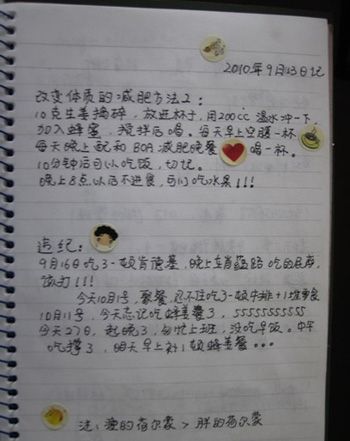 2010年9月13日记
改变体质的减肥方法2:
10克生姜捣碎，放进杯子，用200cc温水冲一下，
加入蜂蜜，搅拌后喝。每天早上空腹一杯
每天晚上配和BOA减肥晚餐 喝一杯。
10分钟后可以吃饭，切记。
晚上8点以后不进食，可以吃水果!!!
违纪:
9月16日吃了一顿肯德基，晚上在 路吃的
该打!!!
今天10月1号，聚餐，忍不住吃了一顿牛排+1堆零食
10月11号，今天忘记吃蜂姜餐了，5555555555
今天27日，起晚了，匆忙上班，没吃早饭。中午
吃撑了，明天早上补1顿蜂姜餐…
注:瘦的荷尔蒙 > 胖的荷尔蒙